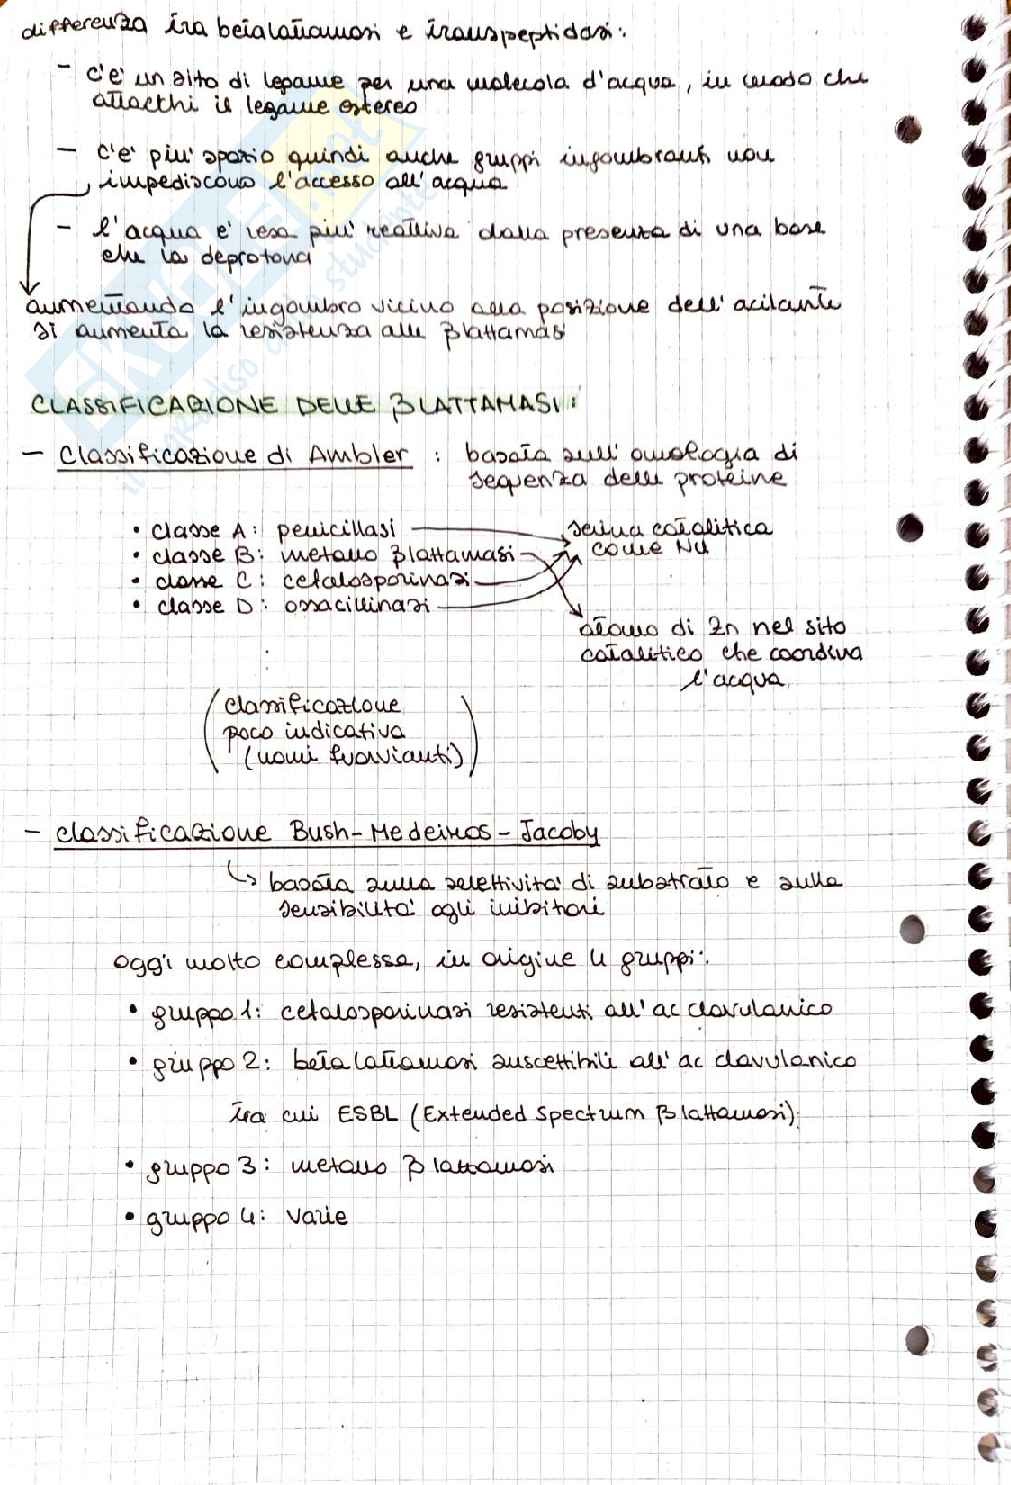 differenza tra betalattamasi e transpeptidasi:
- c'e' un sito di legame per una molecola d'acqua, in modo che
attacchi il legame estereo
- c'e' piu' spazio quindi anche gruppi ingombranti non
impediscono l'accesso all'acqua
- l'acqua e' resa piu' reattiva dalla presenza di una base
che la deprotona
aumentando l'ingombro vicino alla posizione dell'acilante
si aumenta la resistenza alle βlattamasi
CLASSIFICAZIONE DELLE βLATTAMASI:
- Classificazione di Ambler : basata sull'omologia di
sequenza delle proteine
• classe A: penicillasi
serina catalitica
• classe B: metallo βlattamasi
come Nu
• classe C: cefalosporinasi
• classe D: ossacillinasi
atomo di Zn nel sito
catalitico che coordina
l'acqua
(classificazione
poco indicativa
(nomi fuorvianti))
- classificazione Bush-Medeiros-Jacoby
basata sulla selettivita' di substrato e sulla
sensibilita' agli inibitori
oggi molto complessa, in origine 4 gruppi:
• gruppo 1: cefalosporinasi resistenti all'ac clavulanico
• gruppo 2: beta lattamasi suscettibili all'ac clavulanico
tra cui ESBL (Extended Spectrum βlattamasi)
• gruppo 3: metallo βlattamasi
• gruppo 4: varie
skuola.net